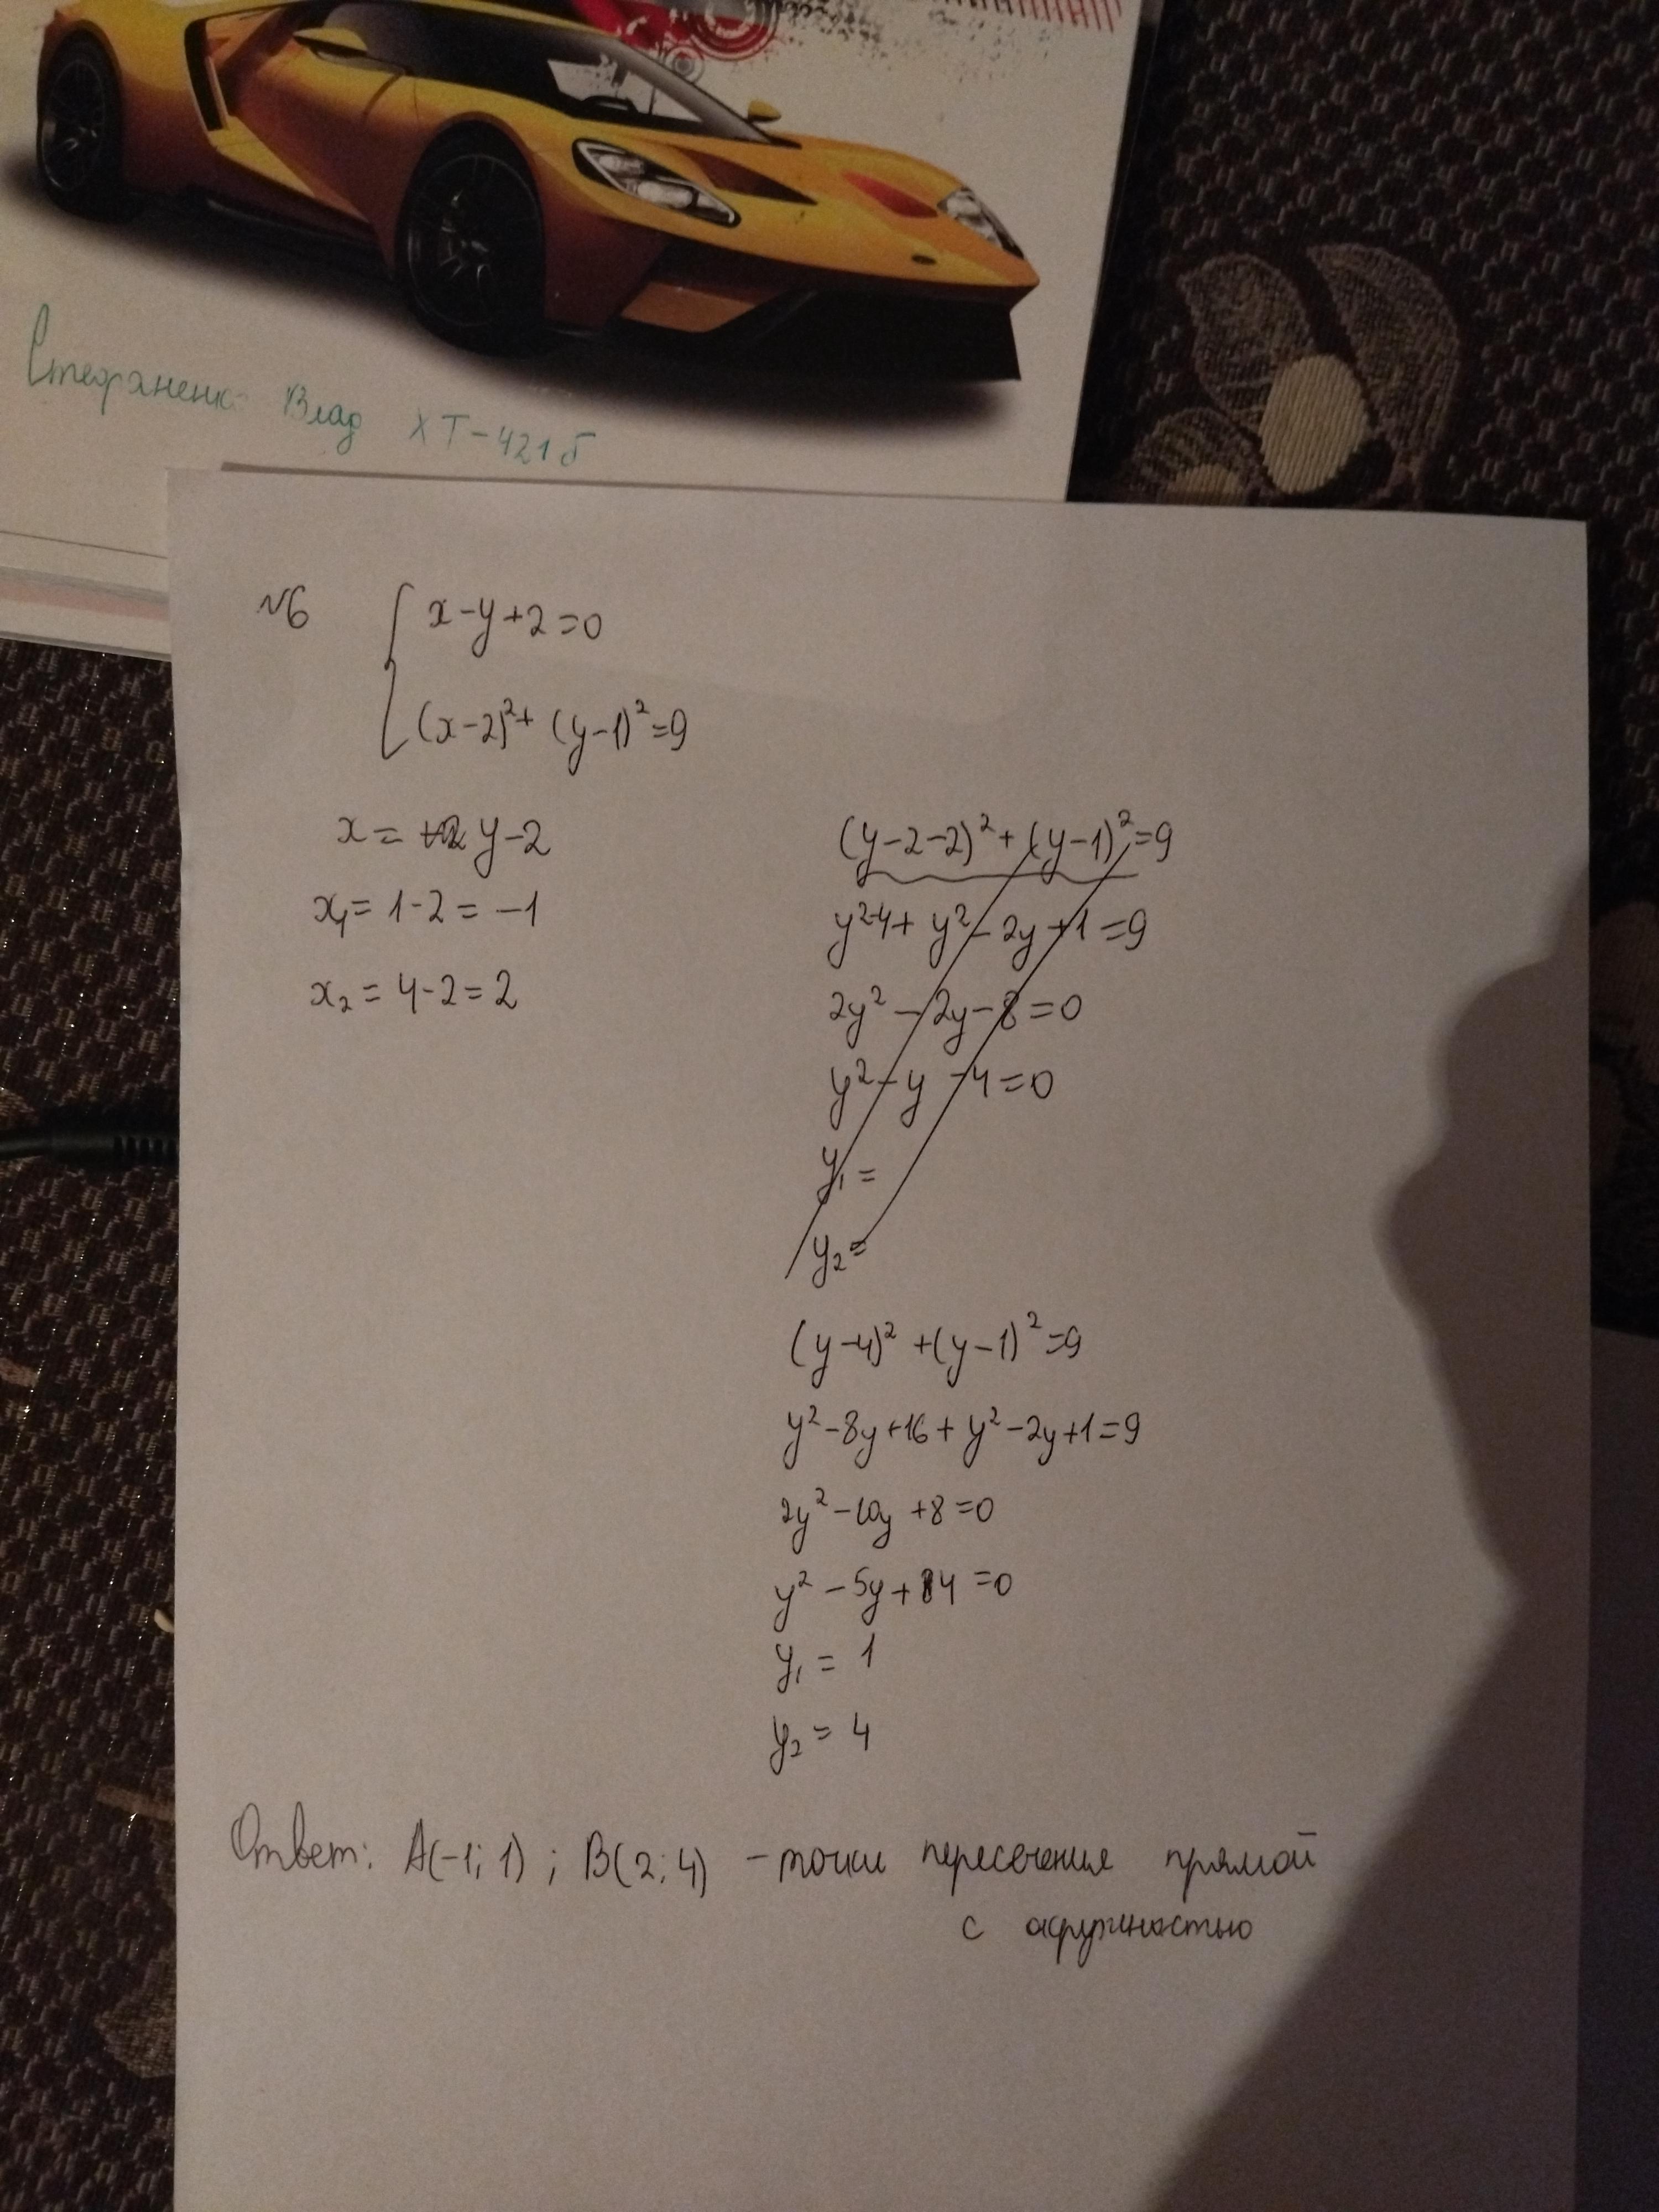 Стефаненко Влад ХТ-421б
№6 { x-y+2=0
(x-2)²+(y-1)²=9
x= y-2
x₁= 1-2 = -1
x₂ = 4-2=2
(y-2-2)²+(y-1)²=9
y²-4+ y²-2y+1=9
2y²-2y-8=0
y²-y-4=0
y₁=
y₂=
(y-4)²+(y-1)²=9
y²-8y+16+y²-2y+1=9
2y²-10y+8=0
y²-5y+4=0
y₁= 1
y₂= 4
Ответ: A(-1; 1) ; B(2; 4) - точки пересечения прямой
с окружностью